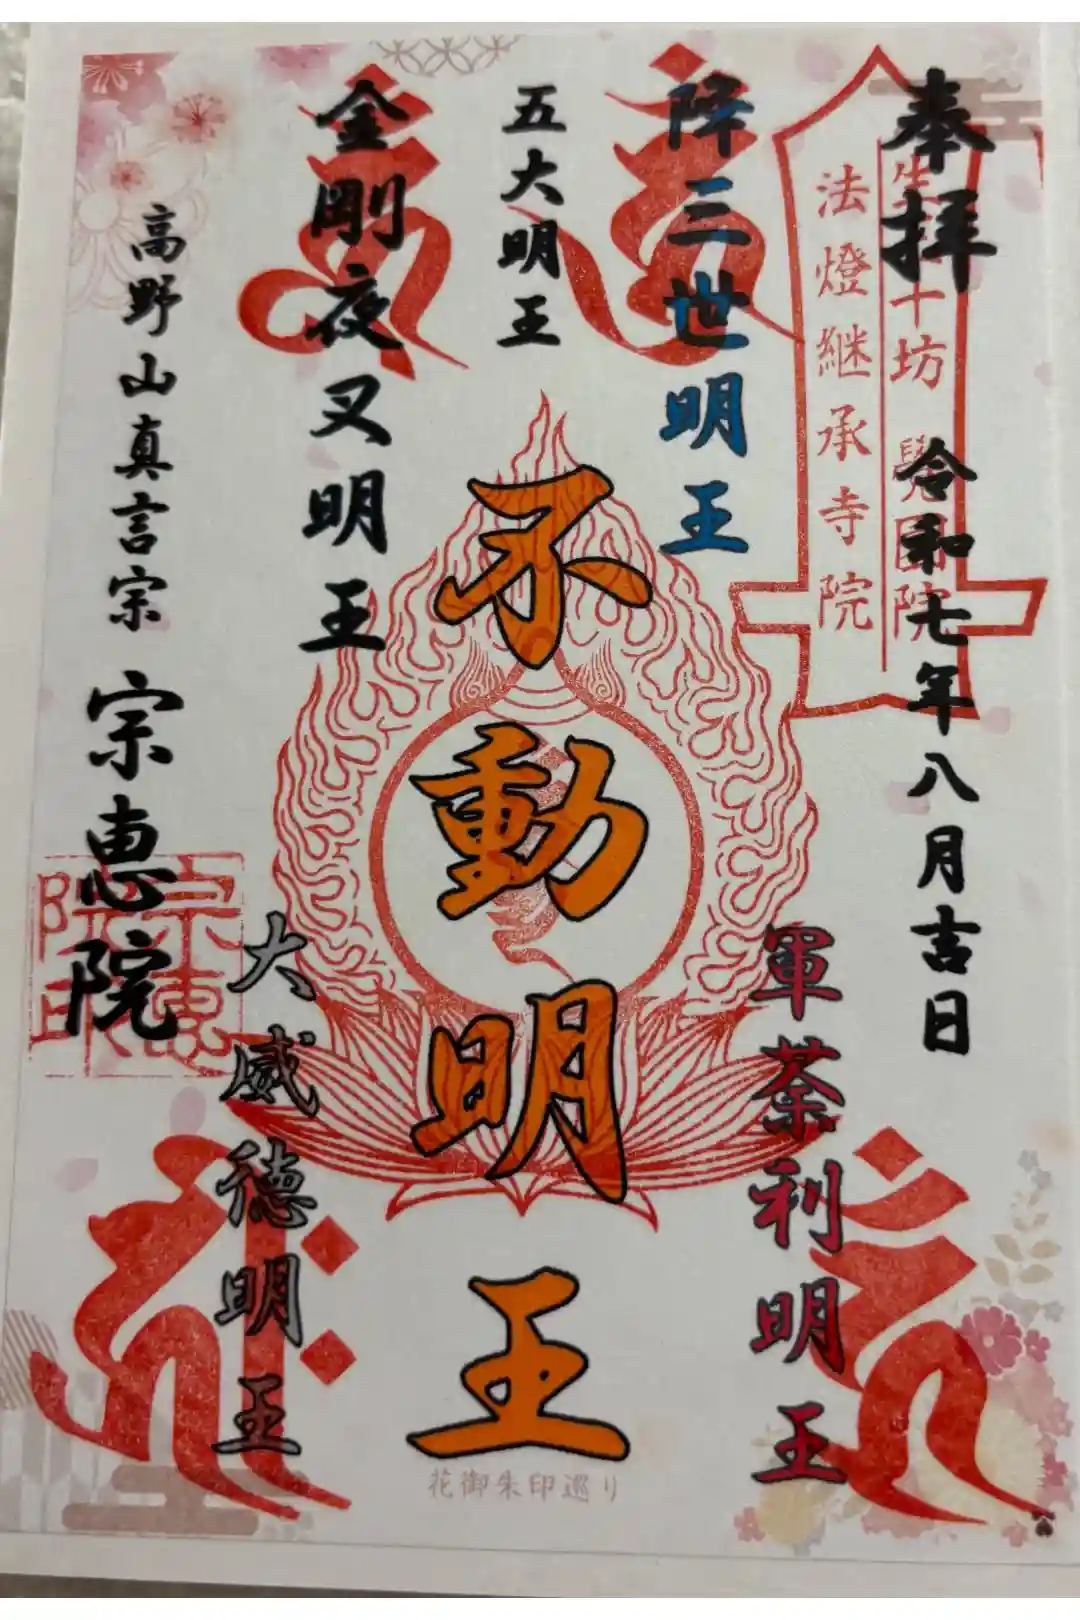 奉拝 令和七年八月吉日
十坊 覺園院
法燈継承寺院
降三世明王
軍荼利明王
五大明王
不動明王
金剛夜叉明王
大威徳明王
高野山真言宗 宗恵院
宗恵
院印
花御朱印巡り